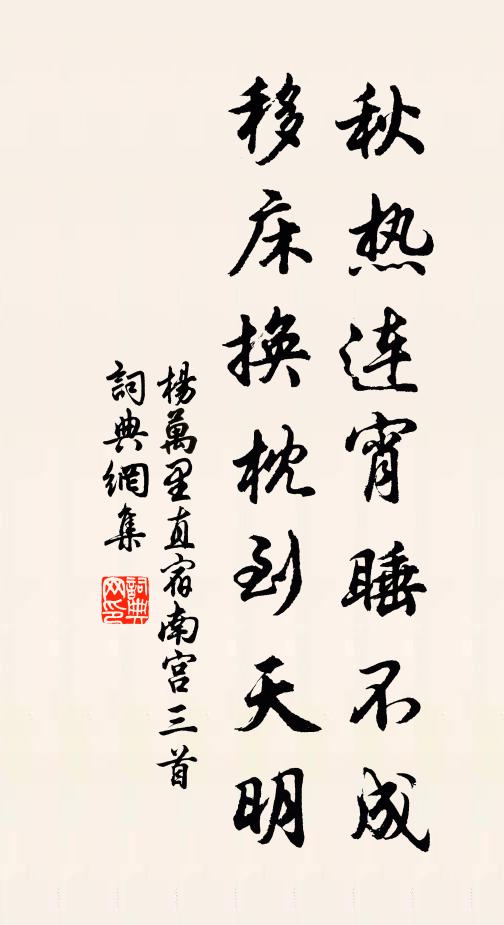 秋热连宵睡不成
移床换枕到天明
楊萬里直宿南宫三首
詞典網集
詞典
网印